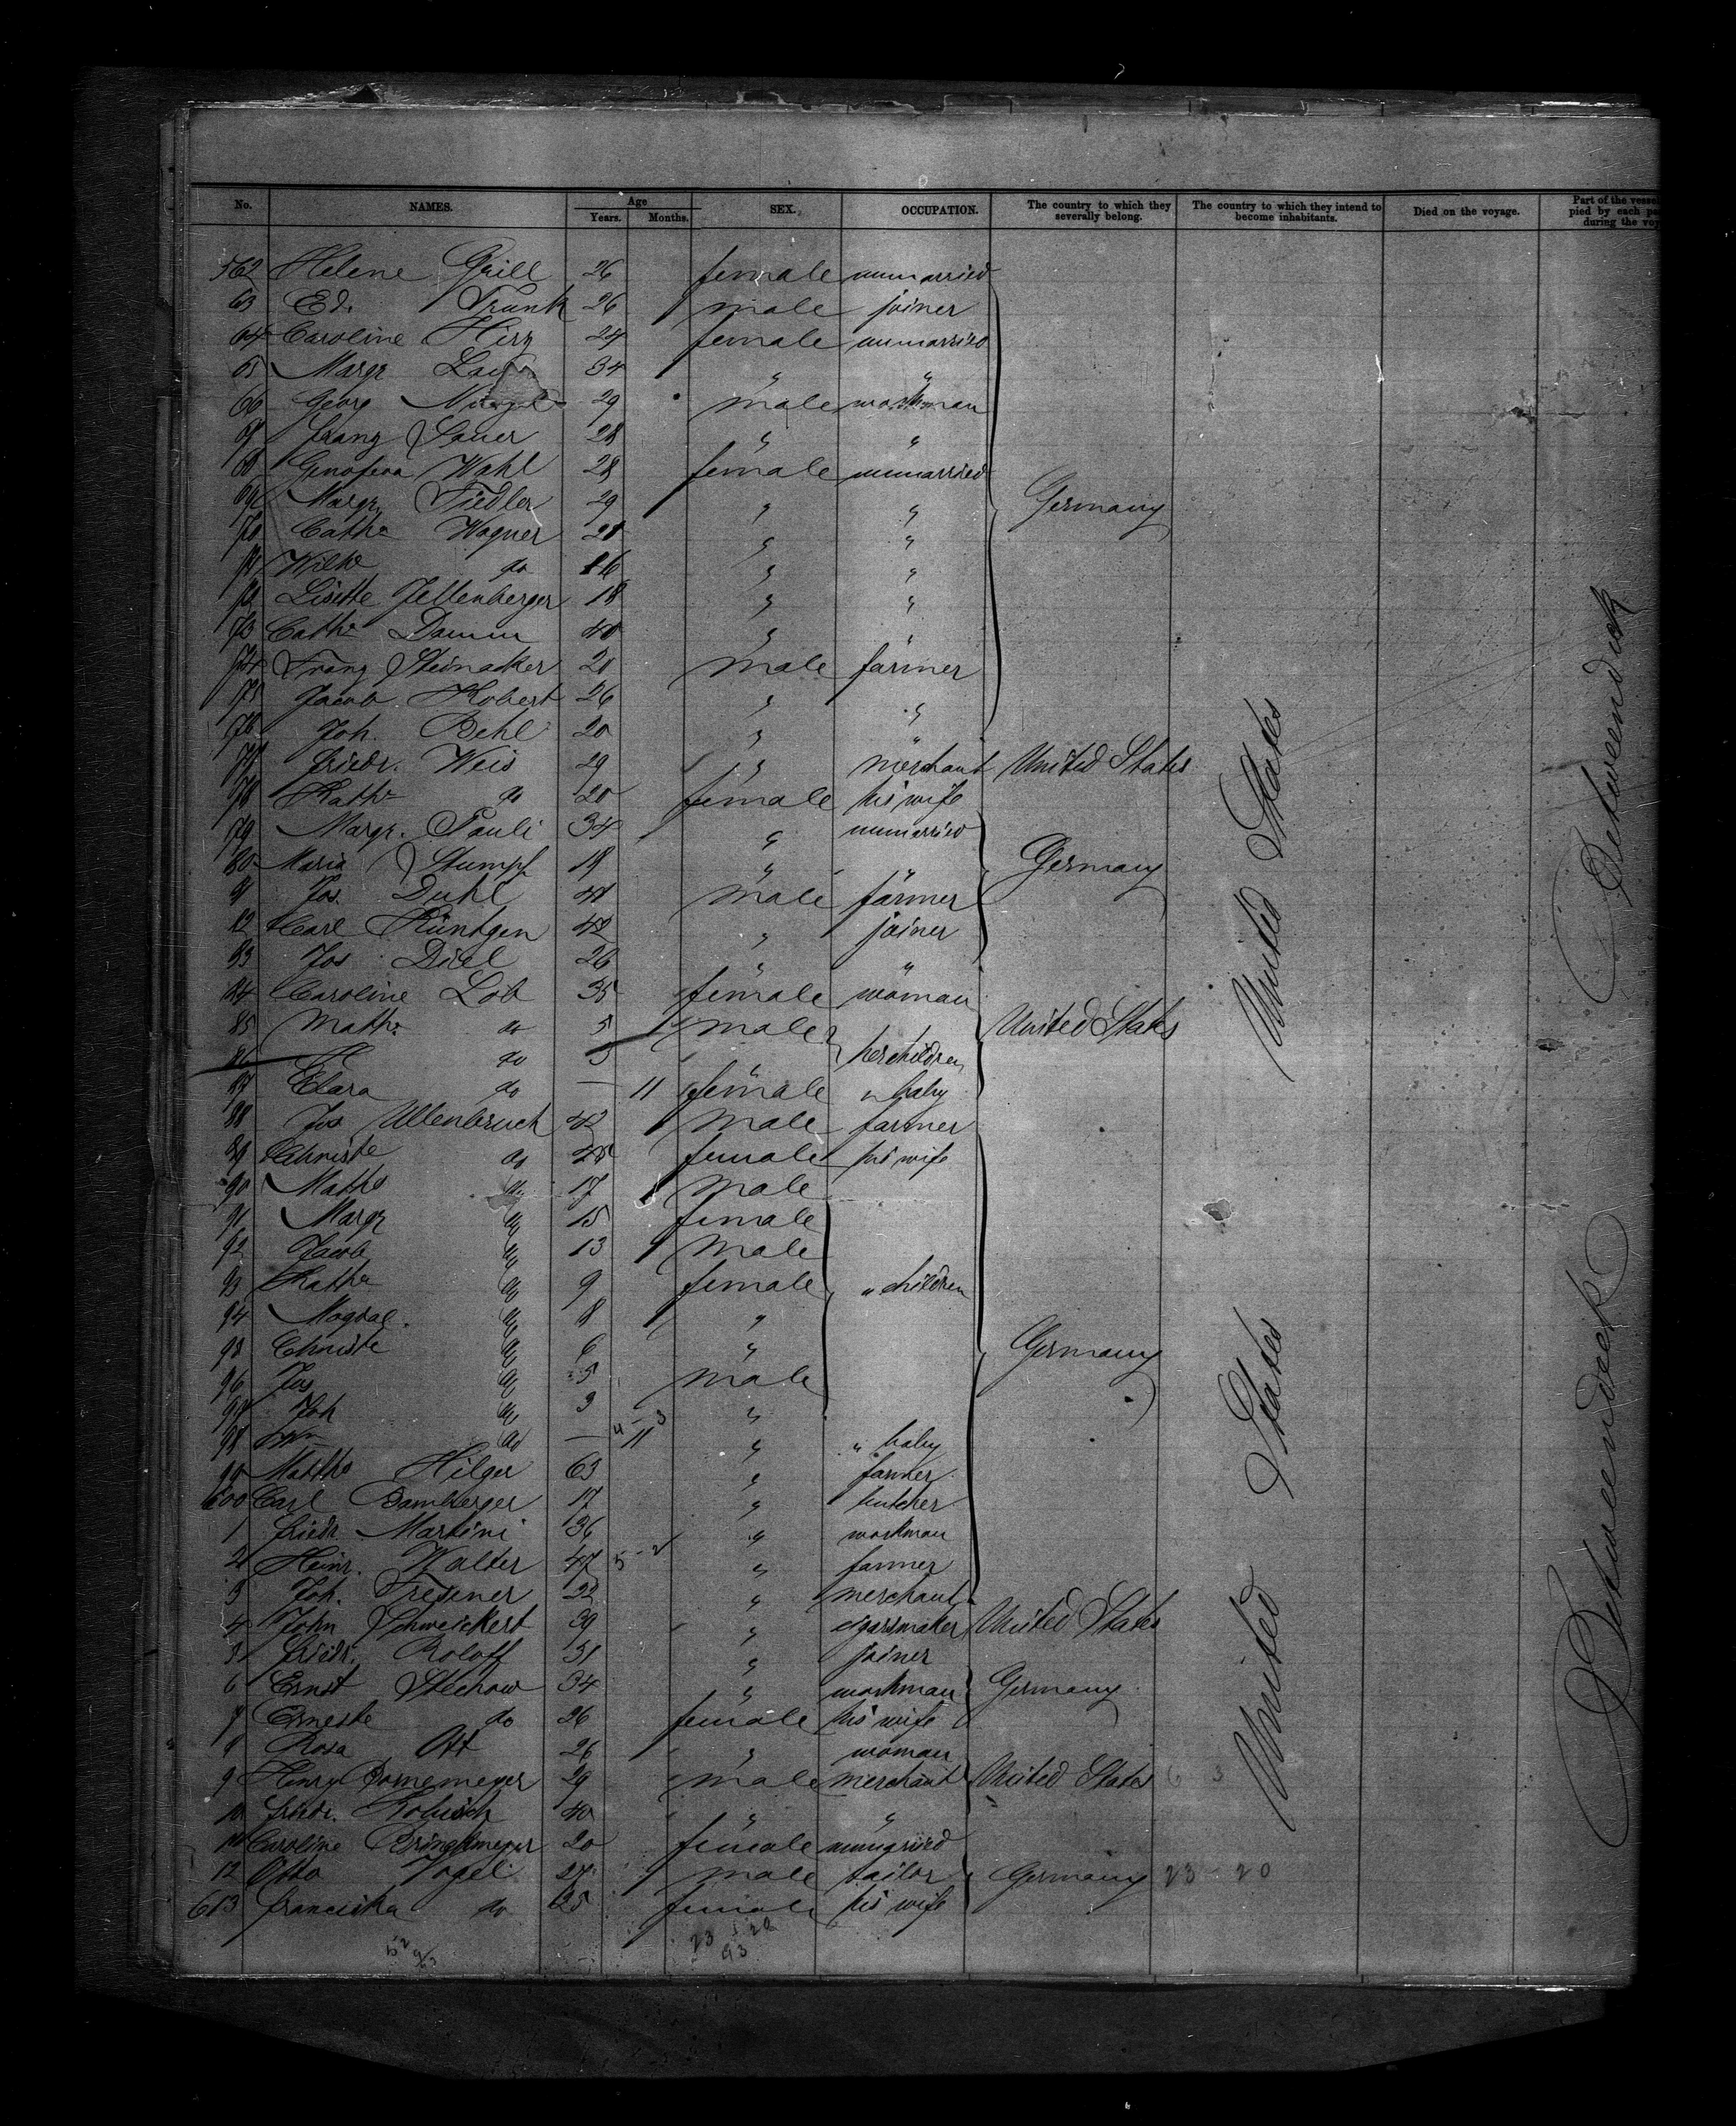 No. NAMES. Age Years. Months. SEX. OCCUPATION. The country to which they severally belong. The country to which they intend to become inhabitants. Died on the voyage. Part of the vessel pied by each pa during the voy
562 Helene Grill 26 female unmarried
63 Ed. Trunk 26 male joiner
64 Caroline Herz 24 female unmarried
65 Margr 34 " "
66 Georg 29 male workman
67 Franz Sauer 28 " "
68 Genofeva Wahl 28 female unmarried
69 Margr. Fiedler 29 " " Germany
70 Cath. Wagner 28 " "
71 Wilhe do 16 " "
72 Lisette Fellenberger 18 " "
73 Cath. Damm 40 " "
74 Franz Steinacker 20 male farmer
75 Jacob Kobert 26 " "
76 Joh. Behl 20 " "
77 Friedr. Weis 29 " merchant United States
78 Kath. do 20 female his wife
79 Margr. Pauli 34 " unmarried
80 Maria Stumpf 18 " " Germany
81 Jos. Duhl male farmer
82 Carl Küntgen 42 " joiner
83 Jos Diel 26 " "
84 Caroline Lob 35 female woman
85 Math. do 5 male United States
86 do 3 " her children
87 Clara do — 11 female " baby
88 Jos Ullenbruch 42 male farmer
89 Christe do 45 female his wife
90 Maths do 17 male
91 Margr do 15 female
92 Jacob do 13 male
93 Kath do 9 female " children
94 Magdal. do 8 "
95 Christe do 6 " Germany
96 Jos do 5 male
97 Joh do 3 "
98 do — 11 " " baby
99 Maths Hilger 63 " farmer
600 Carl Bamberger 17 " butcher
1 Friedr Martini 36 " workman
2 Heinr. Walter 47 " farmer
3 Joh. Tressner 22 " merchant
4 John Schweickert 39 " cigarsmaker United States
5 Friedr. Roloff 31 " joiner
6 Ernst Stechow 34 " workman Germany
7 Erneste do 26 female his wife
8 Rosa Ott 26 " woman
9 Henry Bornemeyer 29 male merchant United States 6 3
10 Friedr. Kobusch 40 " "
11 Caroline Brinckmeyer 20 female unmarried
12 Otto Vogel 27 male tailor Germany 23 - 20
613 Franciska do 25 female his wife
United States
United States
United
Betweendeck
Betweendeck